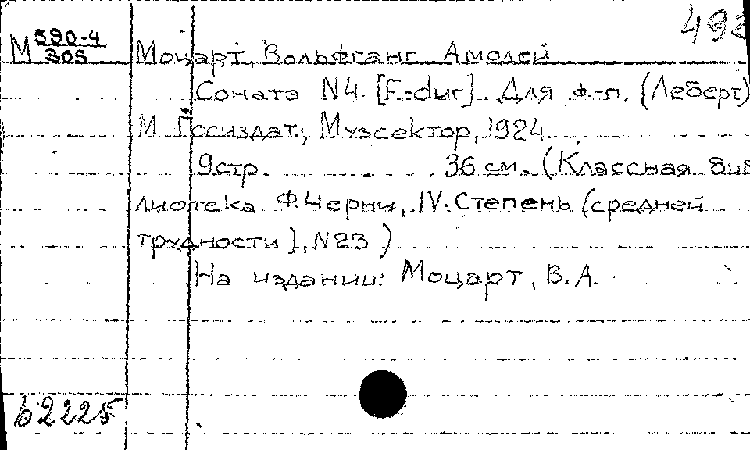 493
М 590-4/305
Моцарт, Вольфганг Амедей
Соната N4. [F-dur]. Для ф-п. (Леберт)
М. Госиздат, Музсектор, 1924
9стр. 36 см. (Классная биб
лиотека Ф. Черни, IV. Степень (средней
трудности), N23)
На издании: Моцарт, В.А.
62225